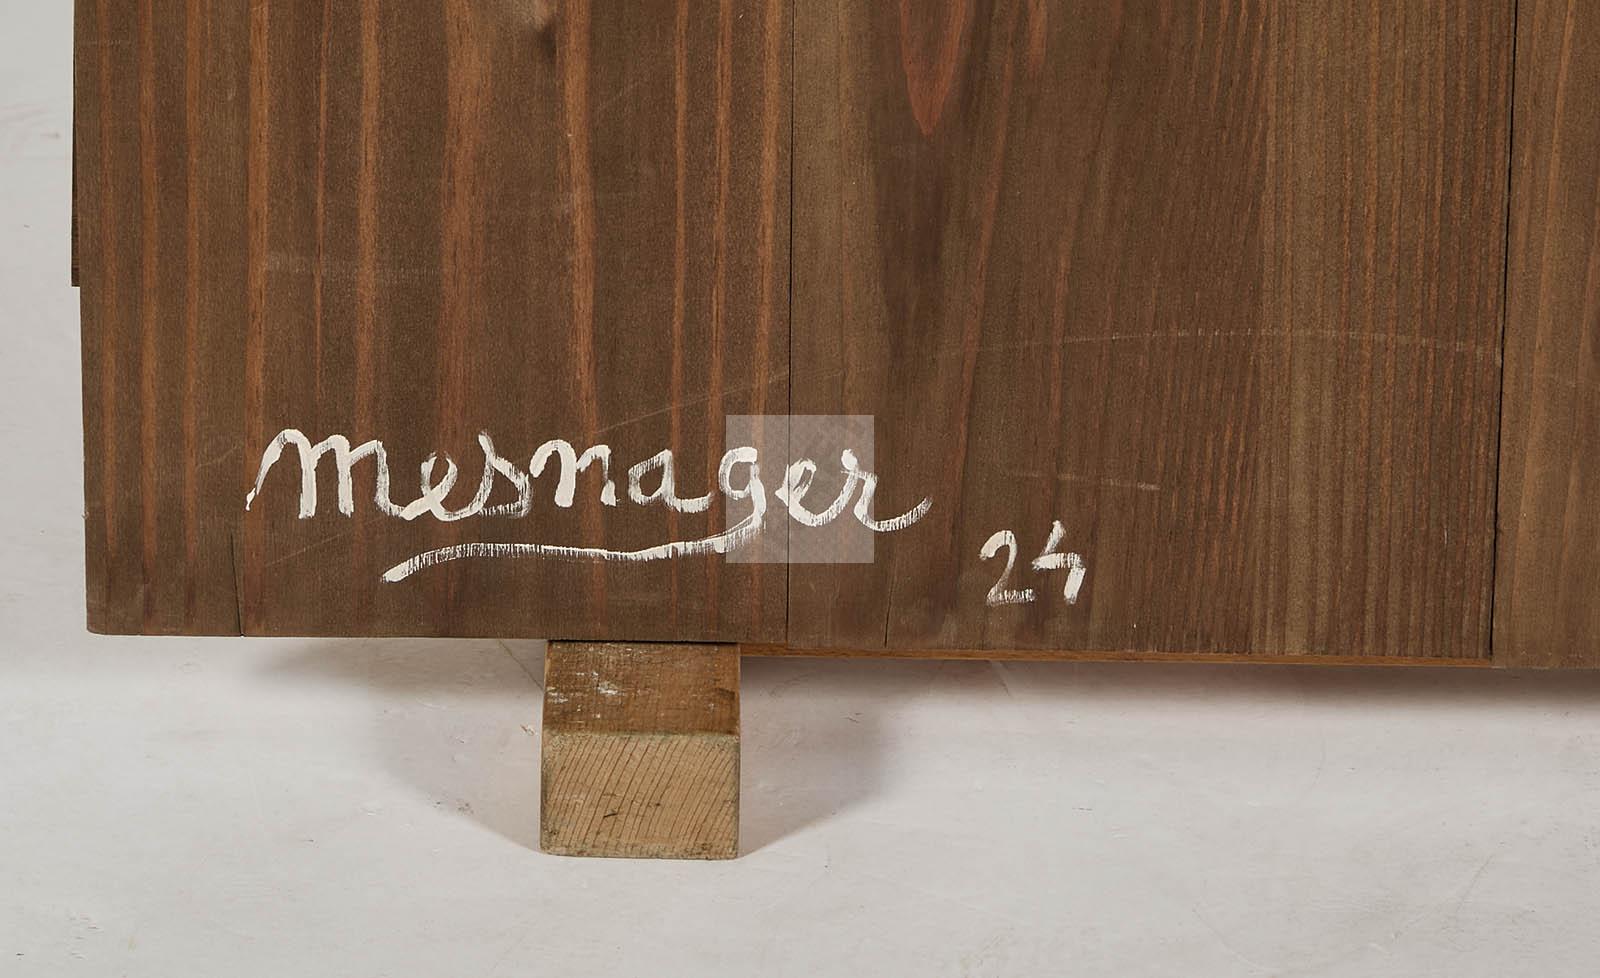 mesnager
24